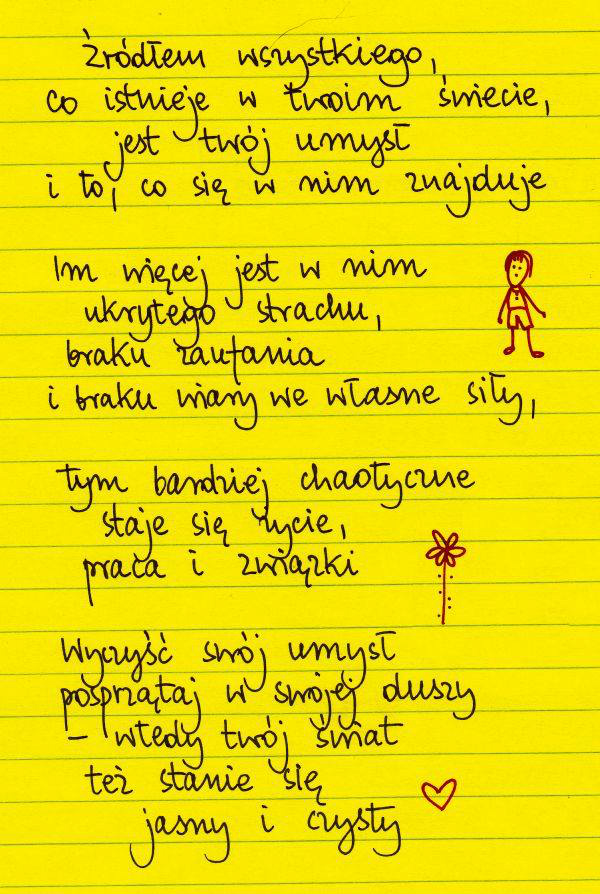 Źródłem wszystkiego,
co istnieje w twoim świecie,
jest twój umysł
i to, co się w nim znajduje
Im więcej jest w nim
ukrytego strachu,
braku zaufania
i braku wiary we własne siły,
tym bardziej chaotyczne
staje się życie,
praca i związki
Wyczyść swój umysł
posprzątaj w swojej duszy
– wtedy twój świat
też stanie się
jasny i czysty